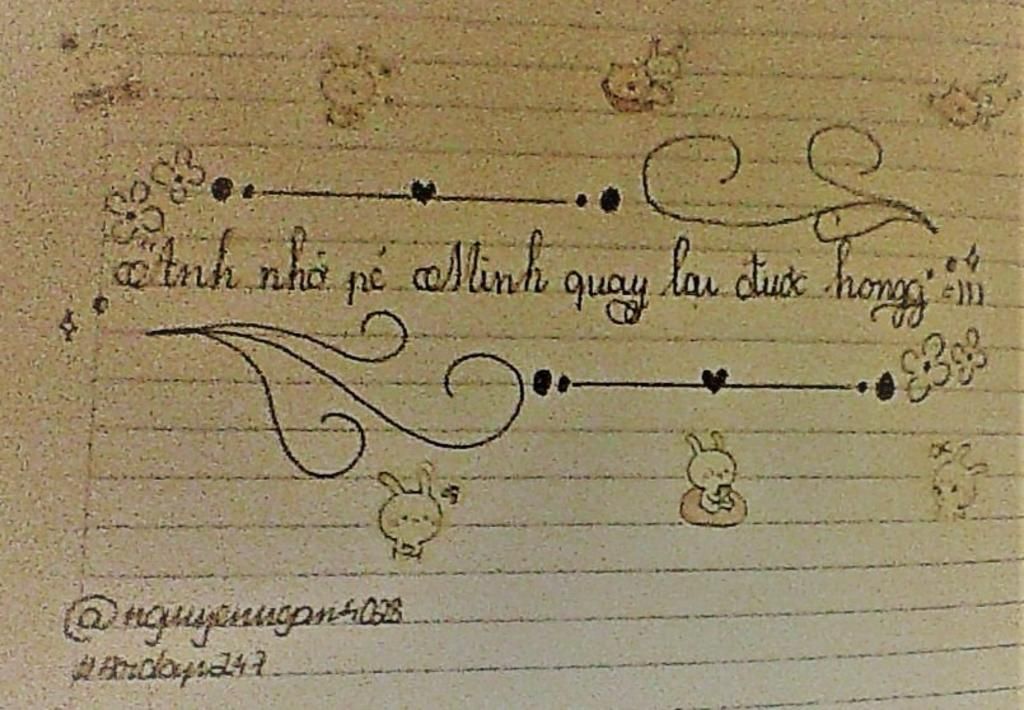 "Anh nhớ pé Minh quay lại được hongg" :)))
@nguyenngan4028